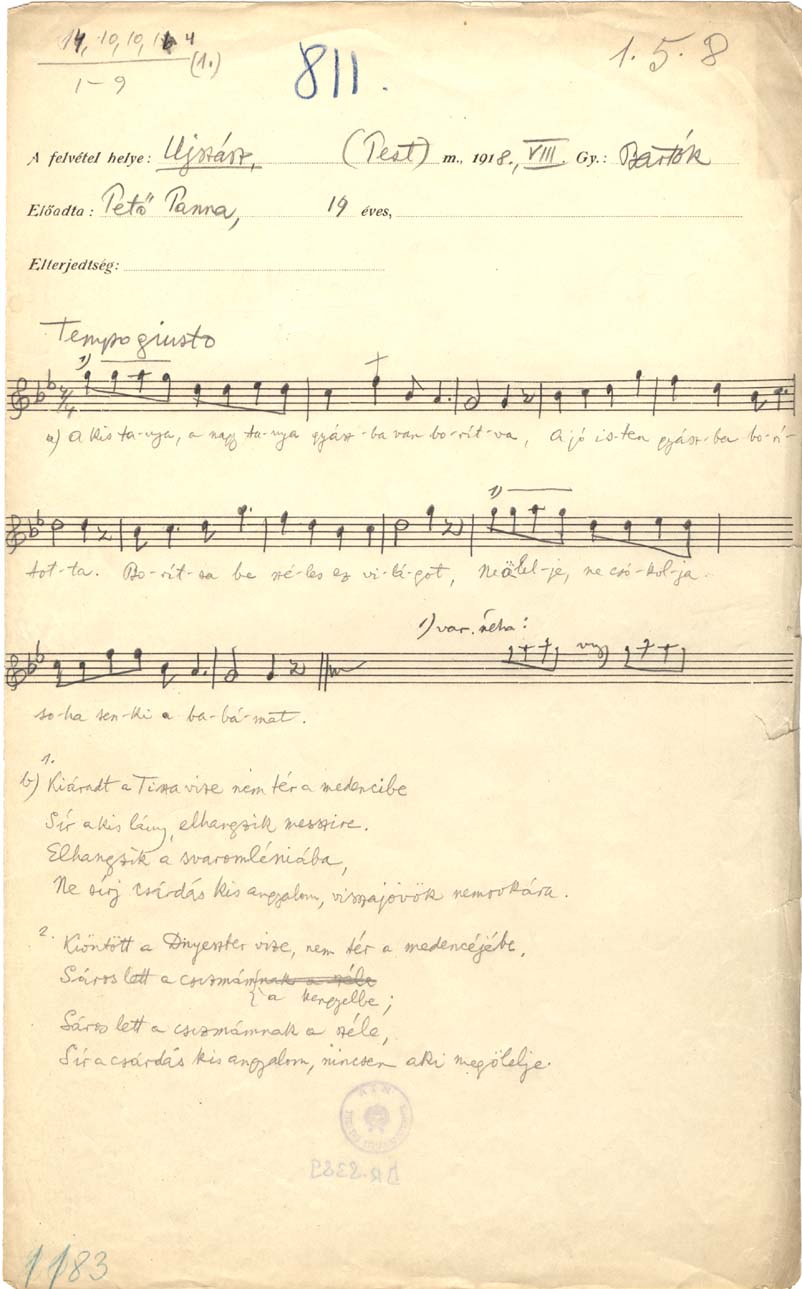 14, 10, 10, 14 (1.)
1–9
811.
1. 5. 8
A felvétel helye: Ujszász, (Pest) m., 1918., VIII. Gy.: Bartók
Előadta: Pető Panna, 19 éves,
Elterjedtség:
Tempo giusto
1)
a) A kis ta-nya, a nagy ta-nya gyász-ba van bo-rít-va, A jó is-ten gyász-ba bo-rí-
1)
tot-ta. Bo-rít-sa be szé-les ez vi-lá-got, Ne ölel-je, ne csó-kol-ja
1) var. néha: vagy
so-ha sen-ki a ba-bá-mat.
1.
b) Kiáradt a Tisza vize nem tér a medencibe
Sír a kis lány, elhangzik messzire.
Elhangzik a svaromléniába,
Ne sírj csárdás kis angyalom, visszajövök nemsokára.
2. Kiöntött a Dnyeszter vize, nem tér a medencéjébe,
Sáros lett a csizmám nak a széle
a kengyelbe;
Sáros lett a csizmámnak a széle,
Sír a csárdás kis angyalom, nincsen aki megölelje.
1183